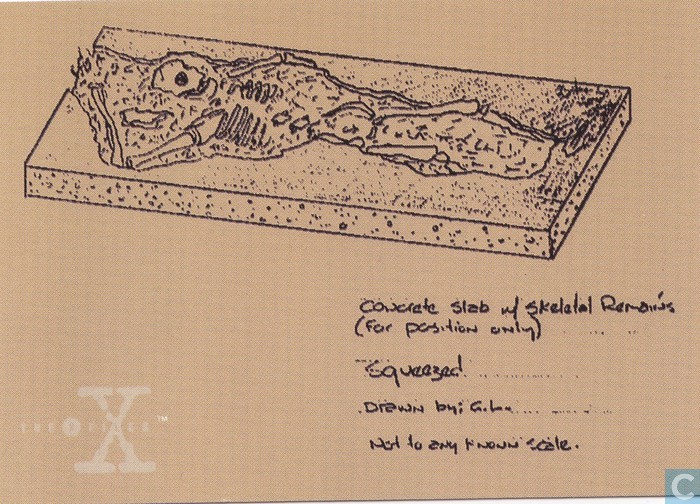 Concrete slab w/ Skeletal Remains
(For position only)
Squeezed
Drawn by: G.L.
Not to any known scale.
THE X FILES ™
X
C